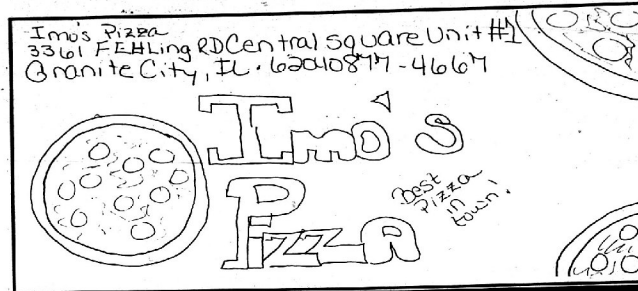 Imo's Pizza
3361 FEHLing RD Central square Unit #1
Granite City, IL. 62040877-4667
Imo's
Pizza
Best
Pizza
in
town!